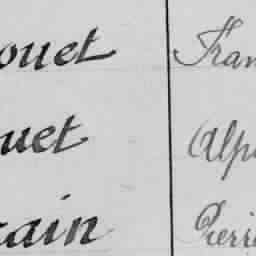 ouet Fran
uet Alph
rain Pierre